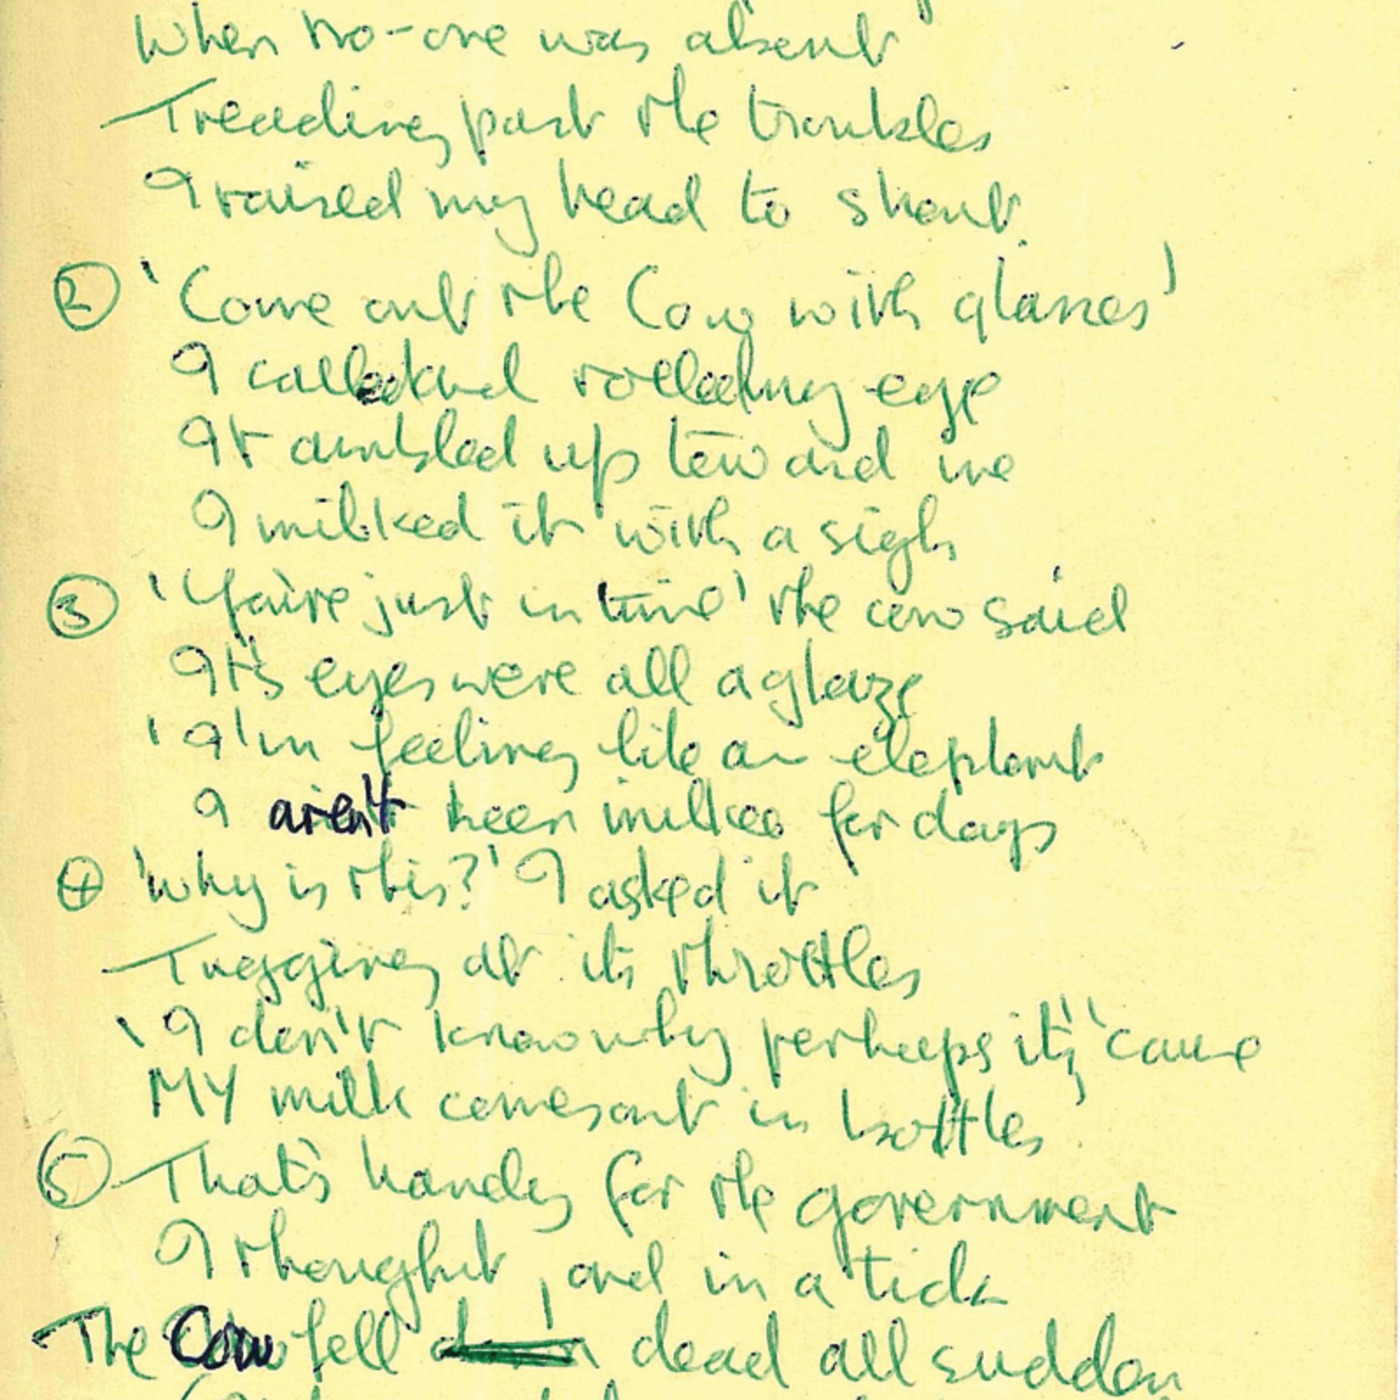 When no-one was absent
Treading past the troubles
I raised my head to shout.
② 'Come out the Cow with glasses'
I called and rolled my eye
It ambled up toward me
I milked it with a sigh
③ 'You're just in time' the cow said
It's eyes were all aglaze
'I'm feeling like an elephant
I aren't been milked for days
④ 'Why is this?' I asked it
Tugging at its throttles
'I don't know why perhaps it's 'cause
MY milk comes out in bottles'
⑤ That's handy for the government
I thought, and in a tick
The Cow fell dead all sudden